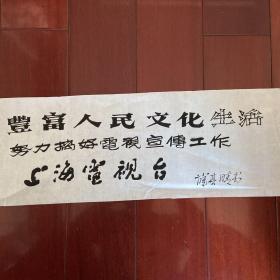 豐富人民文化生活
努力搞好電視宣傳工作
上海電視台